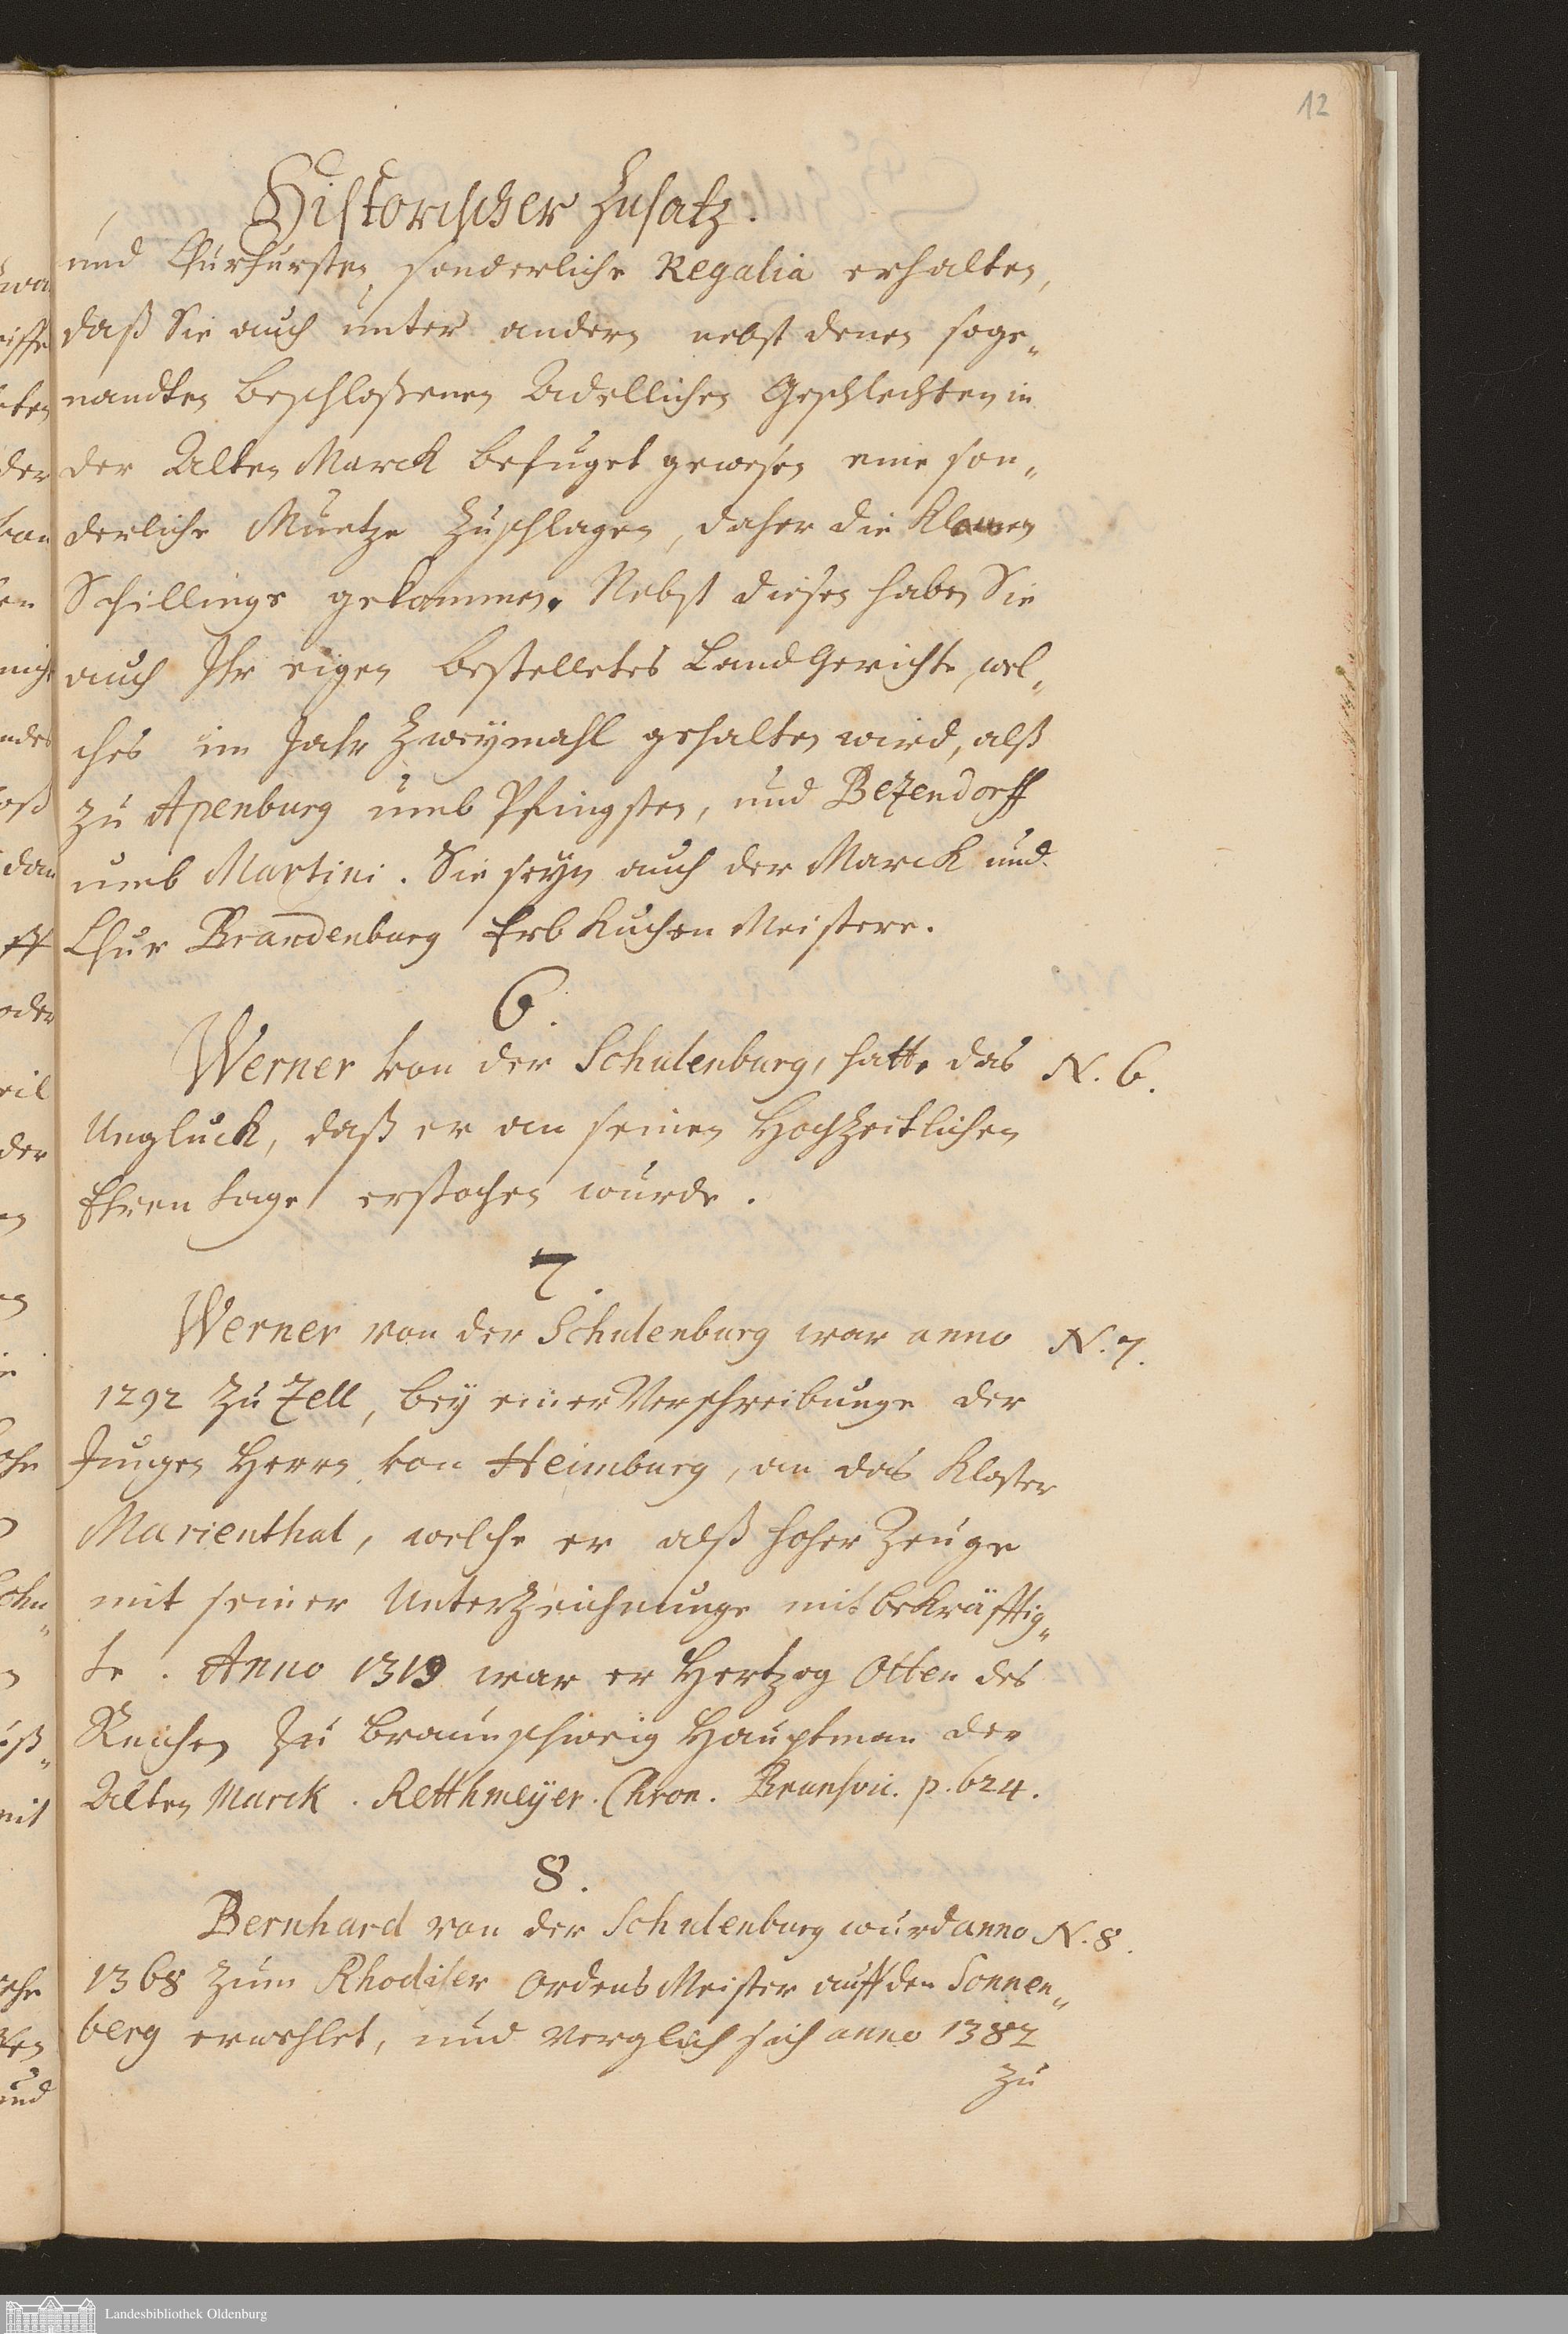 12
Historischer Zusatz.
und Churfursten, sonderliche Regalia erhalten,
daß Sie auch unter andern nebst denen soge„
nandten beschloßenen Adellichen Geschlechten in
der Alten Marck befuget gewesen eine son„
derliche Muntze zuschlagen, daher die Klawen
Schillinge gekommen. Nebst diesen haben Sie
auch Ihr eigen bestelletes Land Gerichte, wel„
ches im Jahr Zweymahl gehalten wird, alß
zu Apenburg umb Pfingsten, und Bezendorff
umb Martini. Sie seyn auch der Marck und
Chur Brandenburg Erb Kuchen Meistere.
6.
Werner von der Schulenburg, hatte das N. 6.
Ungluck, daß er an seinen Hochzeitlichen
Ehren tage erstochen wurde.
7.
Werner von der Schulenburg war anno N. 7.
1292 zu Zell, bey einer Verschreibunge der
Jungen Herrn von Heimburg, an das Kloster
Marienthal, welche er alß hoher Zeuge
mit seiner Unterzeichnunge mit bekräfftig„
te. Anno 1319 war er Hertzog Otten des
Reichen zu Braunschweig Hauptman der
Alten Marck. Retthmeyer. Chron. Brunsvic. p. 624.
8.
Bernhard von der Schulenburg wurd anno N. 8.
1368 zum Rhodiser Ordens Meister auff den Sonnen„
berg erwehlet, und verglich sich anno 1382
zu
Landesbibliothek Oldenburg